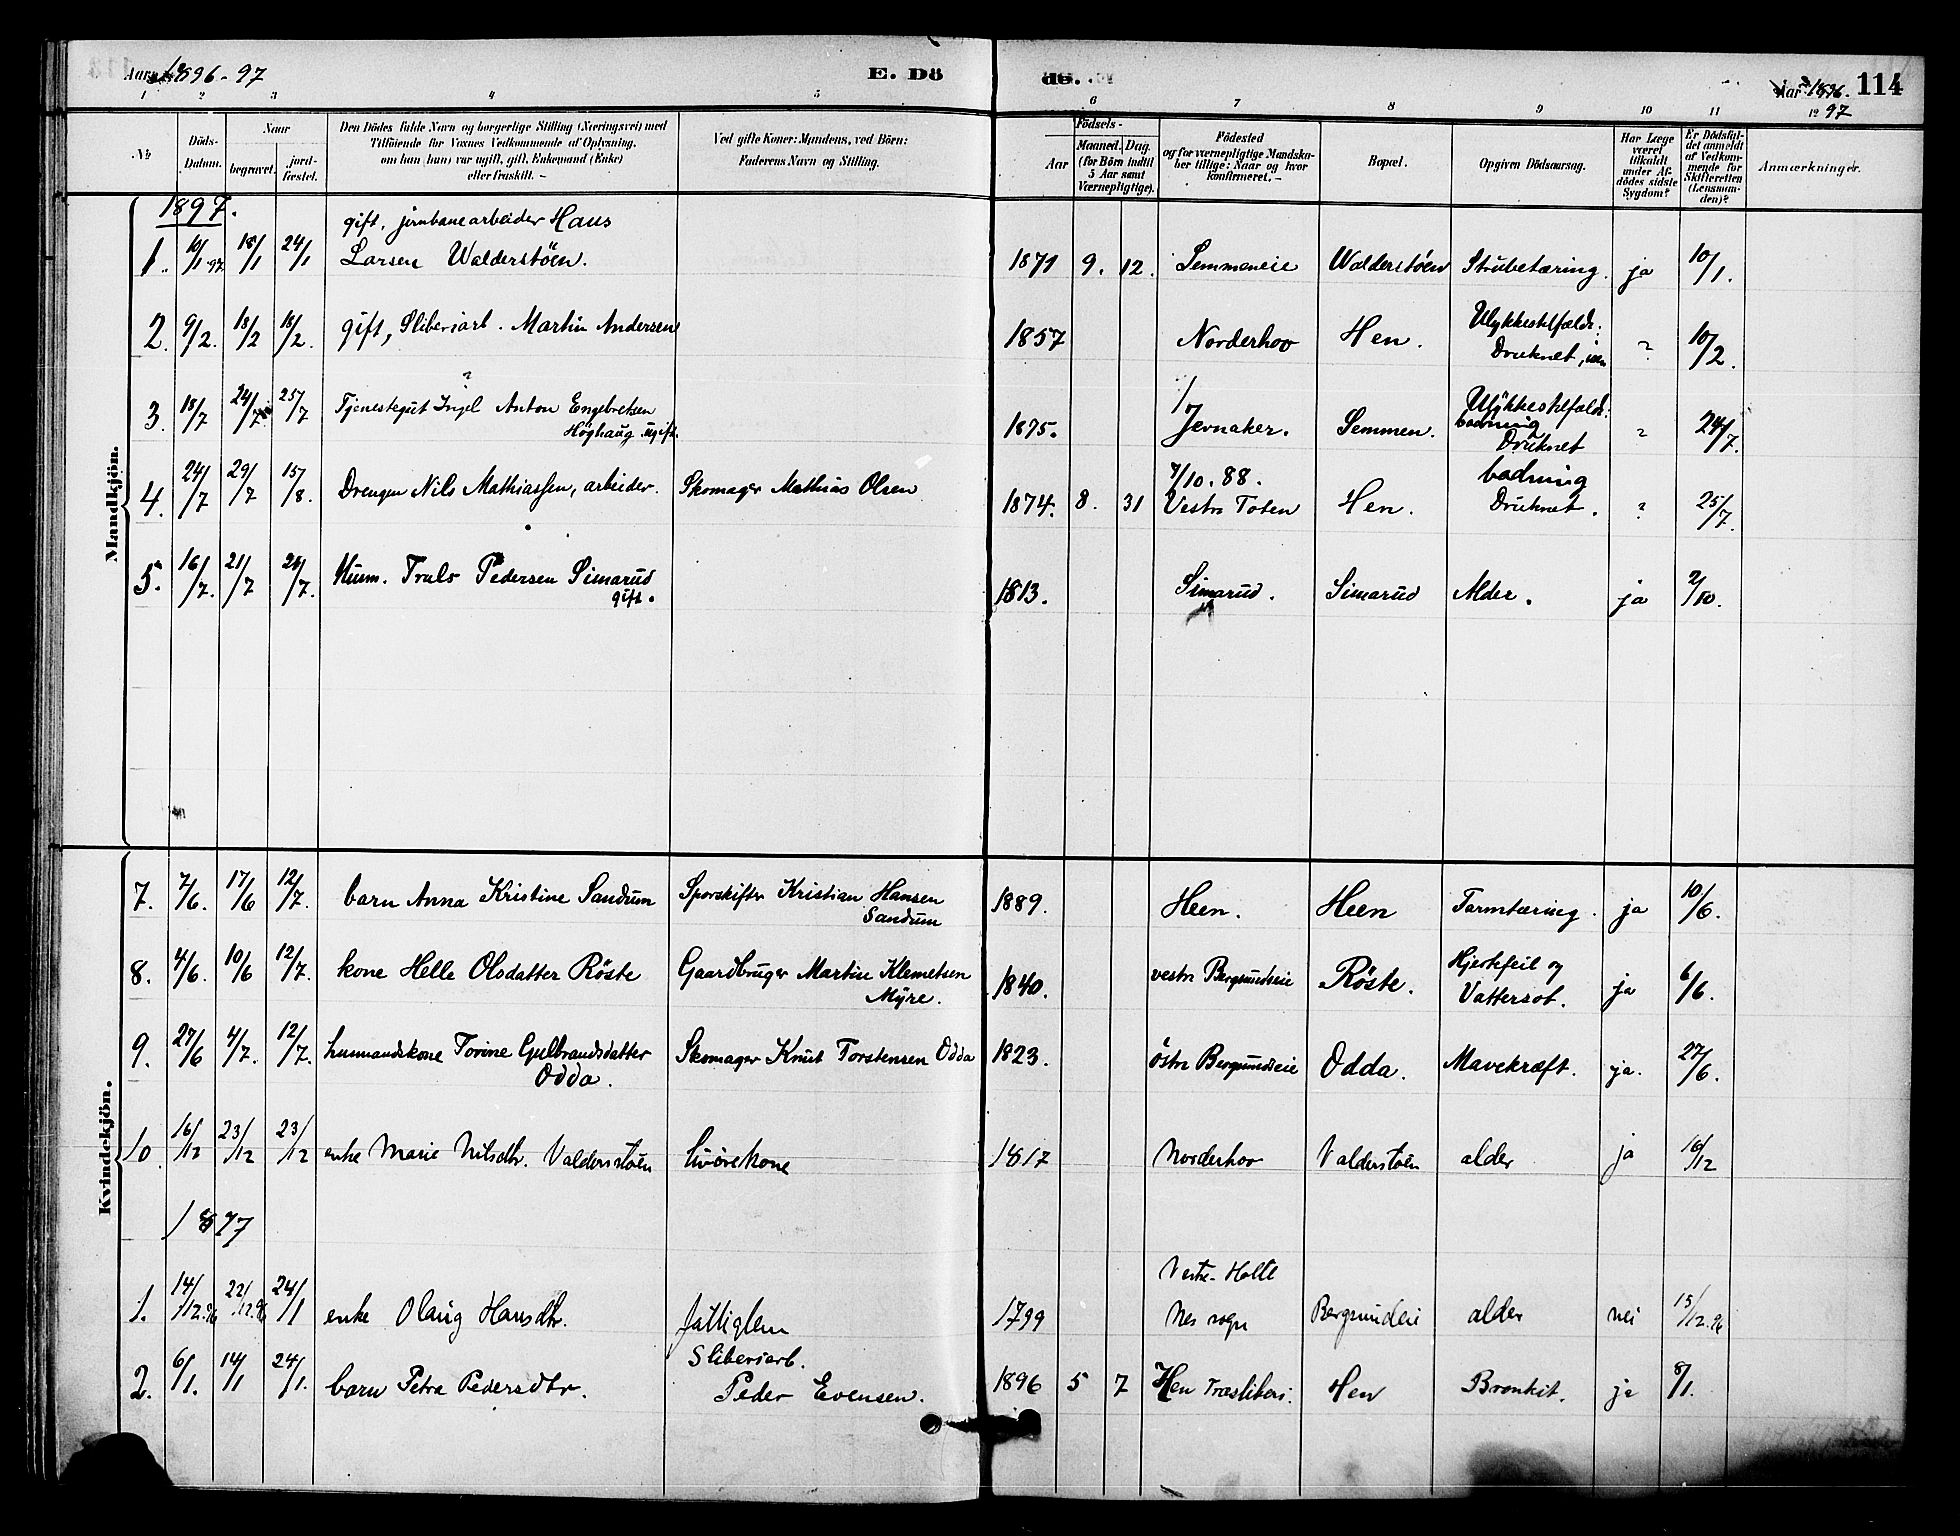 Aar 1896-97
E. Dö
de.
Aar 1896-
1897
114
1 2 3 4 5 6 7 8 9 10 11 12
No
Döds-Datum.
Naar
begravet.
jord-fæstet.
Den Dödes fulde Navn og borgerlige Stilling (Næringsvei) med
Tilföiende for Voxnes Vedkommende af Oplysning,
om han (hun) var ugift, gift, Enkemand (Enke)
eller fraskilt. —
Ved gifte Koner: Mandens, ved Börn:
Faderens Navn og Stilling.
Födsels-
Aar
Maaned. Dag.
(for Börn indtil
5 Aar samt
Værnepligtige).
Födested
og for værnepligtige Mandska-
ber tillige: Naar og hvor
konfirmeret. —
Bopæl.
Opgiven Dödsaarsag.
Har Læge
været
tilkaldt
under Af-
dödes sidste
Sygdom?
Er Dödsfal-
det anmeldt
af Vedkom-
mende for
Skifteretten
(Lensman-
den)?
Anmærkninger.
Mandkjön.
1897.
gift, jernbanearbeider Hans
1. 10/1 97 18/1 24/1 Larsen Walderstöen. 1871 9. 12. Semmeneie Walderstöen Strubetæring. ja 10/1.
2. 9/2. 18/2 18/2. gift, Sliberiarb. Martin Andersen 1857 Norderhov Hen. Ulykkestilfælde: Druknet, ? 10/2.
3. 18/7 24/7 25/7 Tjenestegut Ingel Anton Engebretsen Höghaug ugift. 1875. Jevnaker. Semmen. Ulykkestilfælde: badning Druknet ? 24/7.
4. 24/7 29/7 15/8. Drengen Nils Mathiassen, arbeider. Skomager Mathias Olsen 1874. 8. 31 7/10. 88. Vestre Toten Hen. badning Druknet. ? 25/7.
5. 16/7. 21/7 21/7. Husm. Truls Pedersen Simarud gift. 1813. Simarud. Simarud Alder. ja 2/10.
Kvindekjön.
7. 7/6. 17/6 12/7. barn Anna Kristine Sandum Sporskifter Kristian Hansen Sandum 1889. Heen. Heen Tarmtæring. ja 10/6.
8. 4/6. 10/6 12/7. kone Helle Olsdatter Röste Gaardbruger Martin Klemetsen Myre. 1840. vestre Bergsundeie Röste. Hjertefeil og Vattersot. ja 6/6.
9. 27/6 4/7. 12/7. husmandskone Torine Gulbrandsdatter Odda. Skomager Knut Torstensen Odda 1823. östre Bergsundeie Odda. Mavekræft. ja. 27/6.
10. 16/12 23/12 23/12 enke Marie Nilsdtr. Valderstöen 1817 Norderhov Valderstöen alder ja 18/12
1897
1. 14/12.96 22/12.96 24/1 enke Olaug Hansdtr. fattiglem 1799 Vestre- Nes sogn Bergsundeie alder nei 15/12.96
2. 6/1. 14/1 24/1. barn Petra Pedersdtr. Sliberiarb. Peder Evensen. 1896 5 7 Hen Træsliberi. Hen Bronkit. ja 8/1.